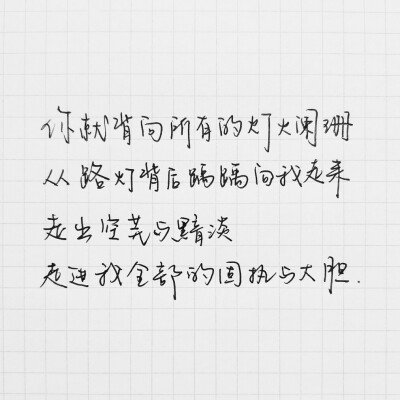 你就背向所有的灯火阑珊
从路灯背后踽踽向我走来
走出空芜与黯淡
走进我全部的固执与大胆.